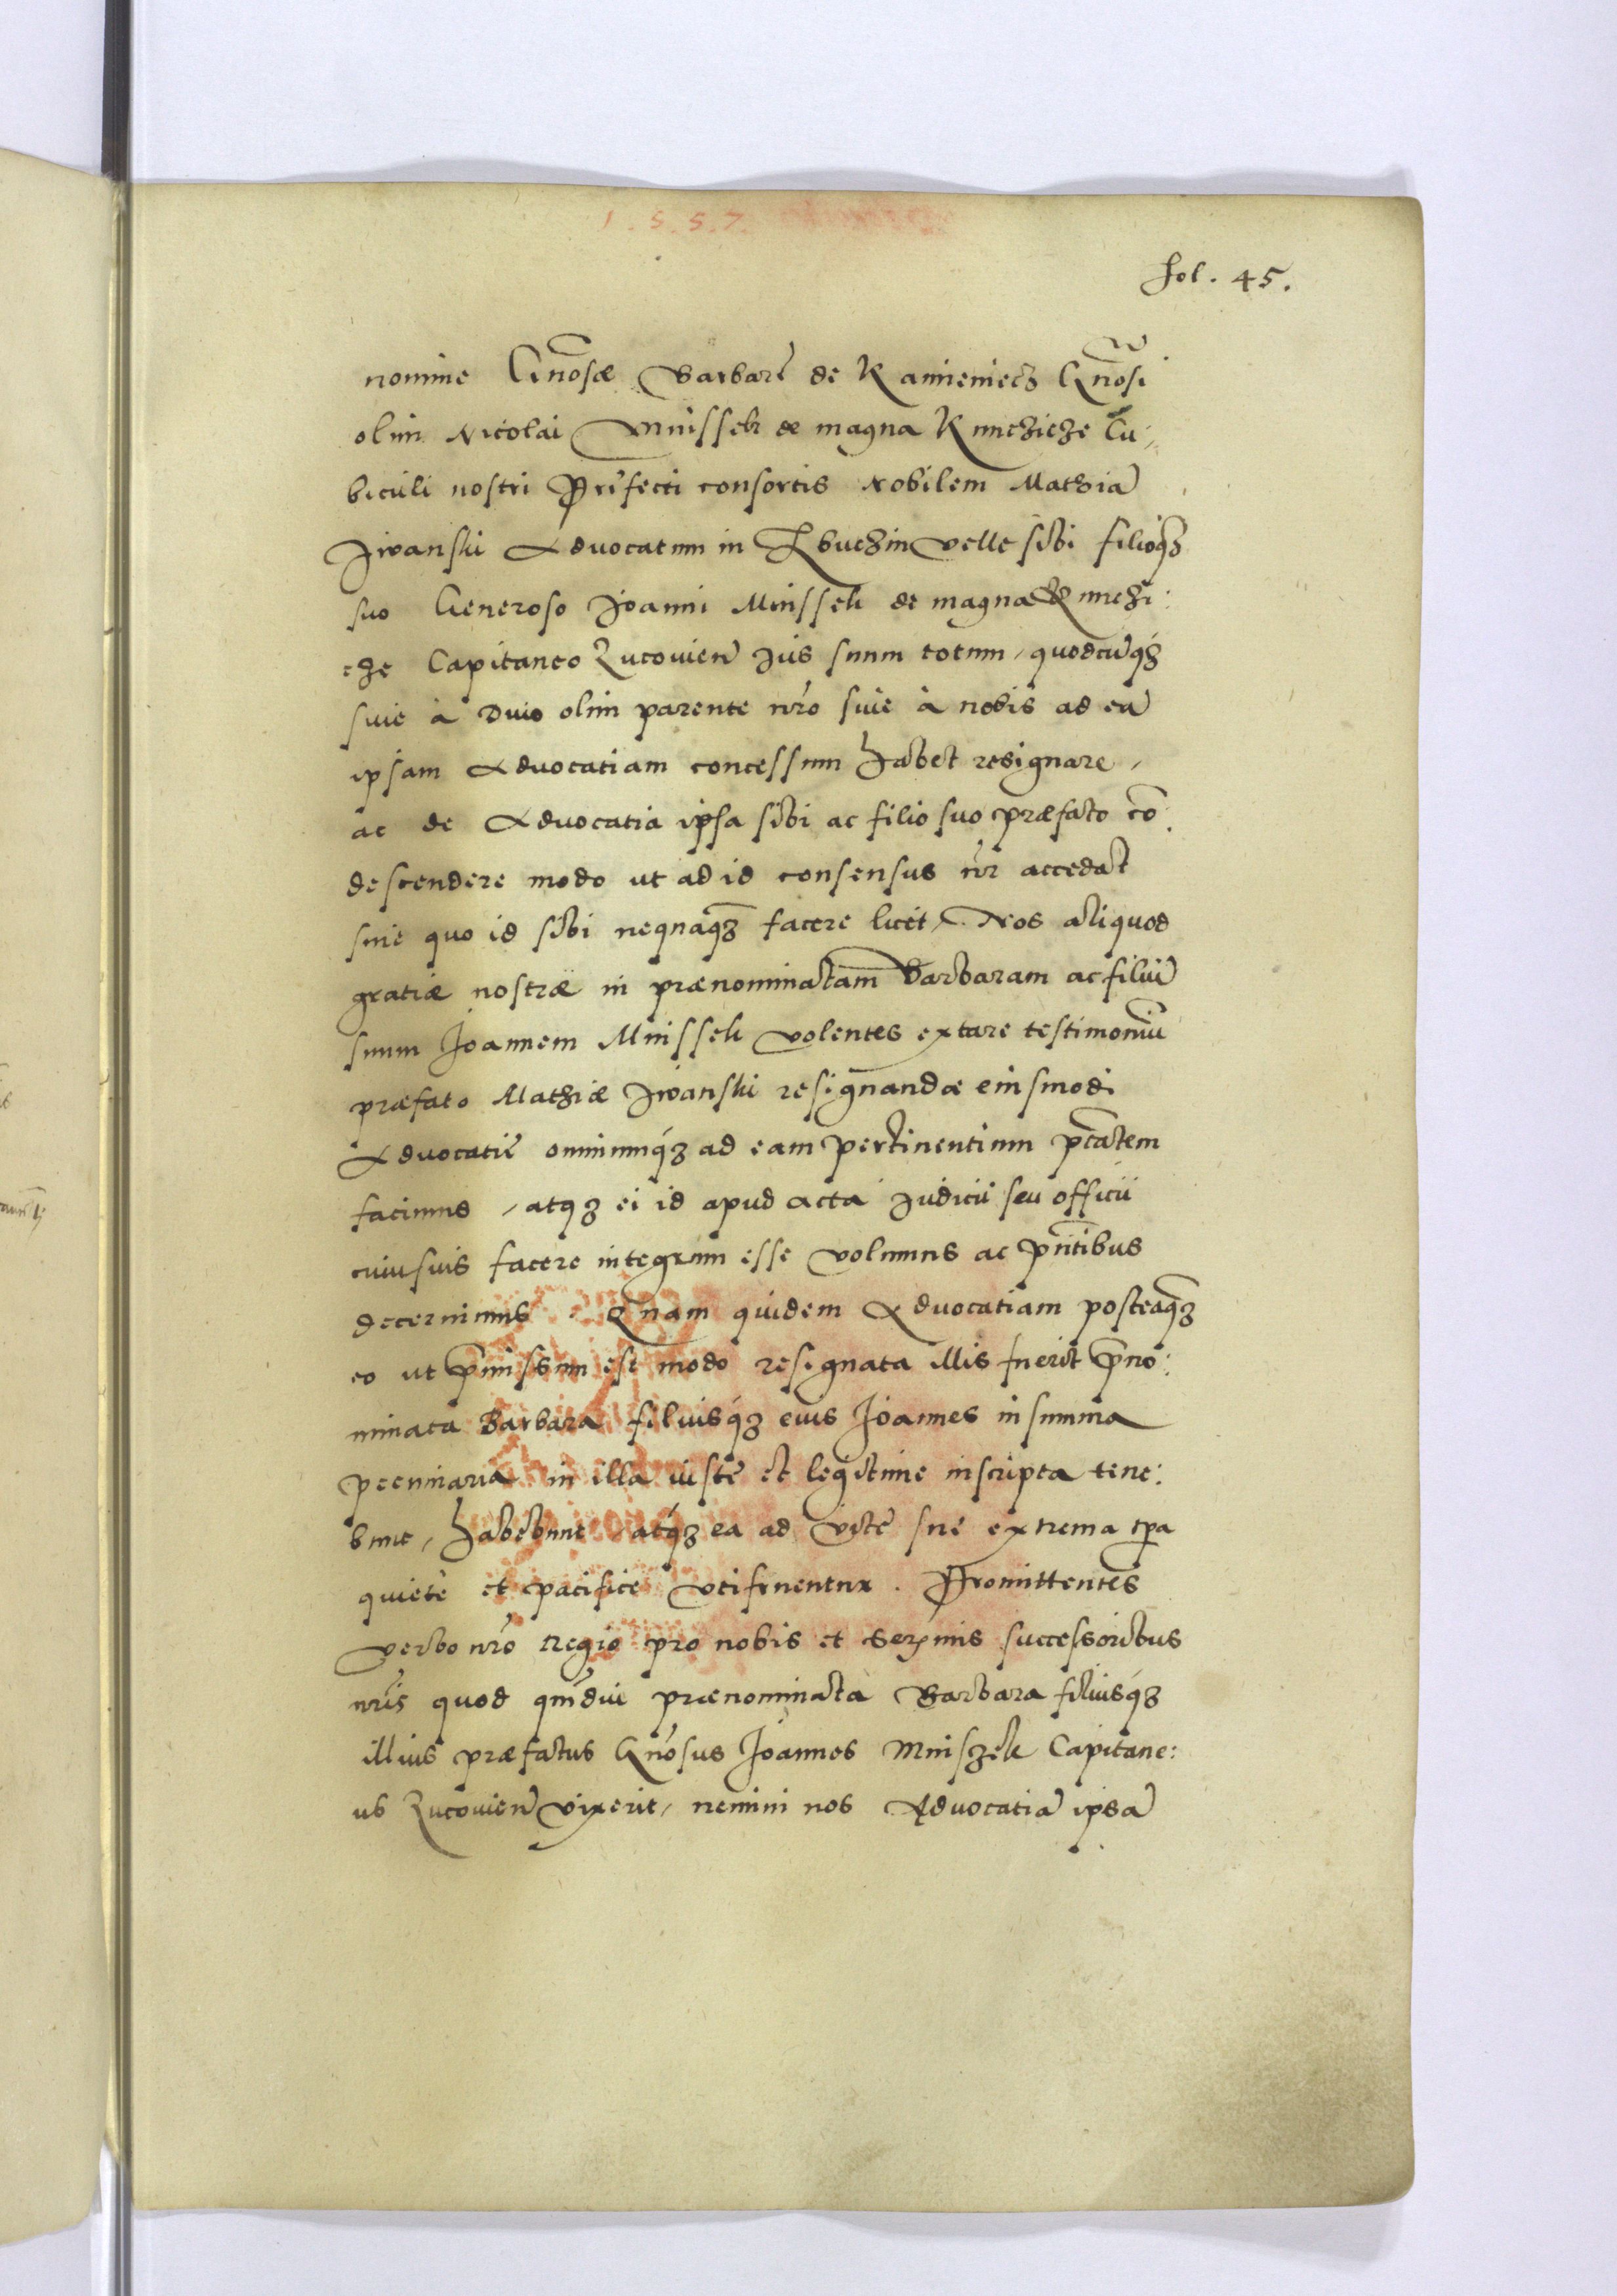 1.5.5.7.
fol. 45.
nomine Gn̄osæ Barbarę de Kamieniecz Gn̄osi
olim Nicolai Mnisseck de magna Kunczicze Cu„
biculi nostri Pręfecti consortis Nobilem Mathiā
Iwanski Advocatum in Zbuczin velle sibi filioq₃
suo Generoso Joanni Mnisseck de magna Kunczi:
cze Capitaneo Zucovien̄ jus suum totum, quodcūq₃
sive à Divo olim parente nr̄o sive à nobis ad eā
ipsam Advocatiam concessum habet resignare,
ac de Advocatia ipsa sibi ac filio suo præfato cō:
descendere modo ut ad id consensus nr̄ accedat
sine quo id sibi nequaq₃ facere licet. Nos aliquod
gratiæ nostræ in prænominatam Barbaram ac filiū
suum Joannem Mnisseck volentes extare testimoniū
præfato Mathiæ Iwanski resignandæ eiusmodi
Advocatię omniumq₃ ad eam pertinentium p̄tatem
facimus, atq₃ ei id apud acta judicii seu officii
cuiusvis facere integrum esse volumus ac p̄ntibus
decernimus. Quam quidem Advocatiam posteaq₃
eo ut p̄missum est modo resignata illis fuerit p̄no:
minata Barbara filiusq₃ eius Joannes in summa
pecuniaria in illa iustè et legitime inscripta tene:
bunt, habebunt, atq₃ ea ad vitę suę extrema tp̄a
quietè et pacifice utifruentur. Promittentes
verbo nr̄o regio pro nobis et Serx̄mis successoribus
nr̄is quod qm̄diu prænominata Barbara filiusq₃
illius præfatus Gn̄osus Joannes Mniszek Capitane:
us Zucovien̄ vixerit, nemini nos Advocatiā ipsā